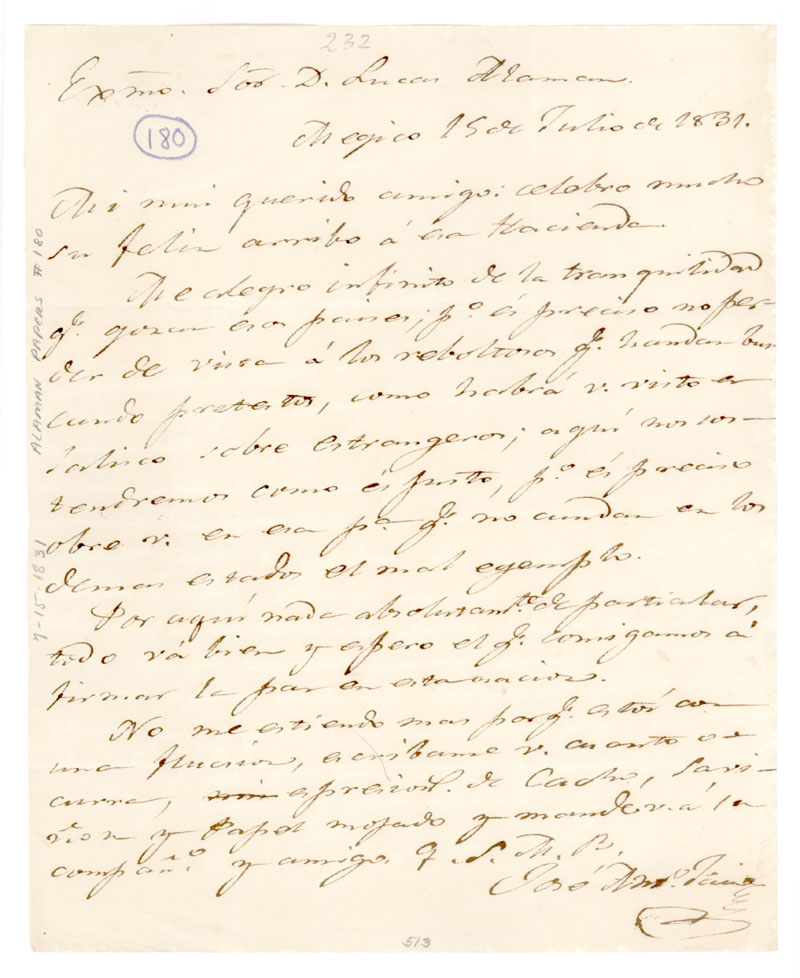 232
Exmo. Sor. D. Lucas Alaman.
180
Megico 15 de Julio de 1831.
Mi mui querido amigo: celebro mucho
su feliz arribo á esa Hacienda.
Me alegro infinito de la tranquilidad
q.e gozan esos paises; p.o és preciso no per-
der de vista á los reboltosos q.e handan bus
cando pretestos, como habrá v. visto en
Jalisco sobre estrangeros; aquí nos sos-
tendremos como és justo, p.o és preciso
obre v. en esa p.a q.e no cundan en los
demas estados el mal egemplo.
Por aquí nada absolutam.te de particular,
todo vá bien y espero el q.e consigamos á
firmar la paz en esta nacion.
No me estiendo mas porq.e estoi con
una flucsion, escribame v. cuanto o-
curra, espresion.s de Cacho,
y Papel mojado y mande v. á su
compañ.o y amigo. q. S. M. B.
José Ant.o
ALAMAN PAPERS #180
7-15-1831
513